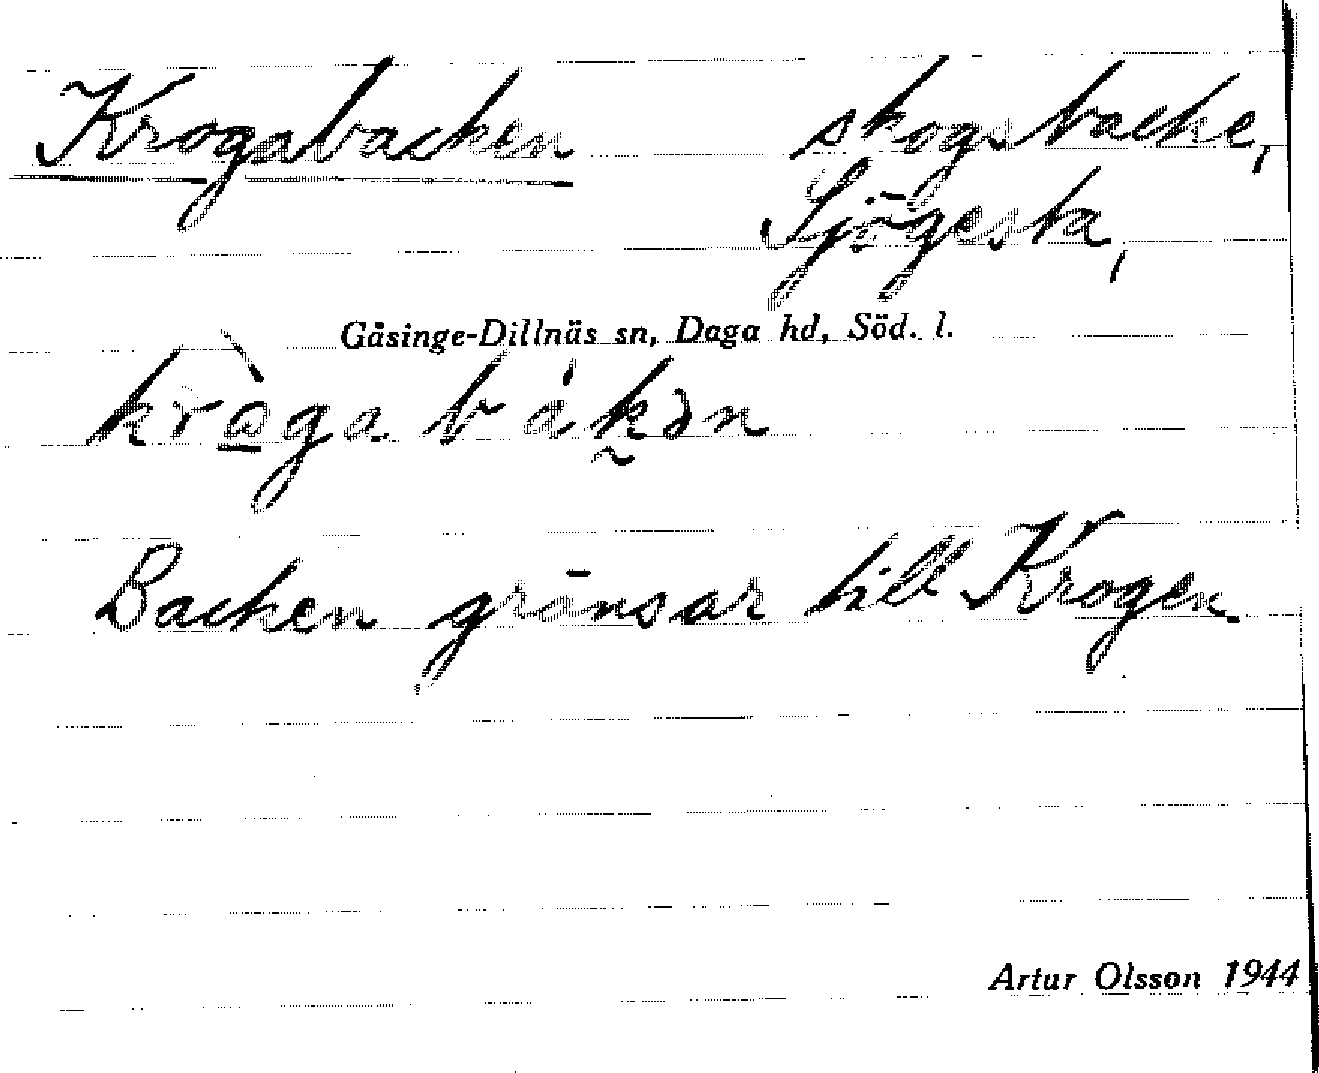 Krogabacken skogsbacke,
Sjögesta,
Gåsinge-Dillnäs sn, Daga hd, Söd. l.
kròga bákən
Backen gränsar till Krogen
Artur Olsson 1944